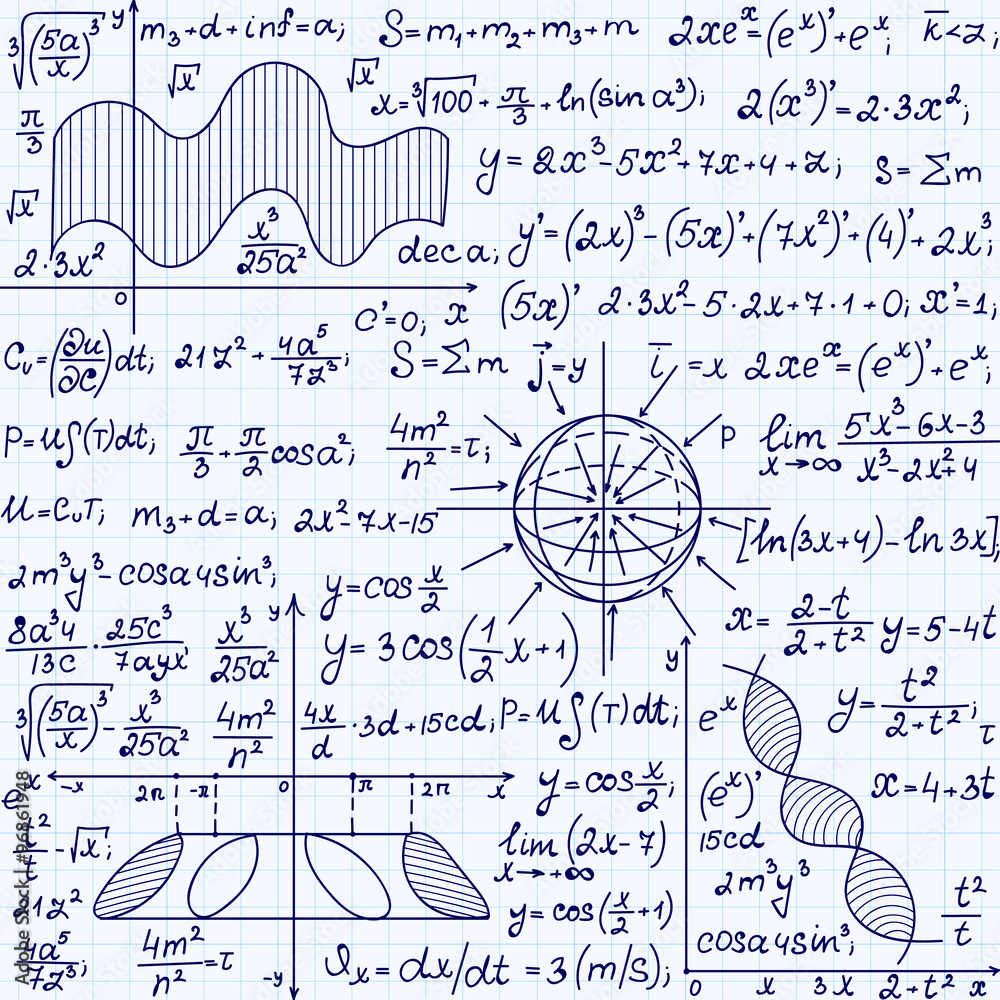 ∛((5a/x)³)' y m₃+d+inf=a; S=m₁+m₂+m₃+m 2xeˣ=(eˣ)'+eˣ; k̅<z;
√x' √x' x=∛100'+π/3+ln(sin a³); 2(x³)'=2·3x²;
π/3
y=2x³-5x²+7x+4+z; S=Σm
√x'
2·3x² x³/25a² dec a; y'=(2x)³-(5x)'+(7x²)'+(4)'+2x³;
0 C'=0; x (5x)' 2·3x²-5·2x+7·1+0; x'=1;
Cᵤ=(∂u/∂c)dt; 21z²+4a⁵/7z³; S=Σm j⃗=y i̅=x 2xeˣ=(eˣ)'+eˣ;
P=u∫(T)dt; π/3+π/2 cosa²; 4m²/n²=τ; P lim x→∞ 5x³-6x-3/x³-2x²+4
u=CᵤT; m₃+d=a; 2x²-7x-15 [ln(3x+4)-ln3x];
2m³y³-cosa4sin³; y=cos x/2
8a³4/13c·25c³/7ayx' x³/25a² y y=3cos(1/2 x+1) x=2-t/2+t² y=5-4t
y
∛((5a/x)³)'-x³/25a² 4m²/n² 4x/d·3d+15cd; P=u∫(T)dt; eˣ y=t²/2+t²; τ
x -x 2π -π 0 π 2π x y=cos x/2; (eˣ)' x=4+3t
-√x'; lim x→+∞ (2x-7) 15cd
1z² y=cos(x/2+1) 2m³y³
4a⁵/7z³; 4m²/n²=τ -y ϑₓ=dx/dt=3(m/s); cosa4sin³; t²/t
0 x 3x 2+t² x
Adobe Stock | #96861948